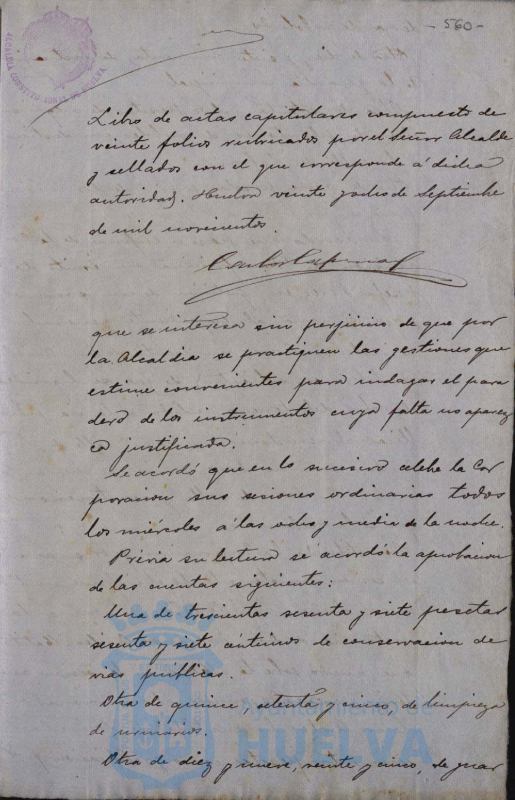 - 560 -
ALCALDIA CONSTITUCIONAL DE HUELVA
Libro de actas capitulares compuesto de
veinte folios rubricados por el Señor Alcalde
y sellados con el que corresponde á dicha
autoridad. Huelva veinte y dos de Septiembre
de mil novecientos.
que se interesa sin perjuicio de que por
la Alcaldia se practiquen las gestiones que
estime convenientes para indagar el para
dero de los instrumentos cuya falta no aparez
ca justificada.
Se acordó que en lo sucesivo celebre la Cor
poracion sus sesiones ordinarias todos
los miércoles á las ocho y media de la noche.
Prévia su lectura se acordó la aprobacion
de las cuentas siguientes:
Una de trescientas sesenta y siete pesetas
sesenta y siete céntimos de conservacion de
vias públicas.
Otra de quince, setenta y cinco, de limpieza
de urinarios.
Otra de diez y nueve, veinte y cinco, de guar
Ayuntamiento de
HUELVA